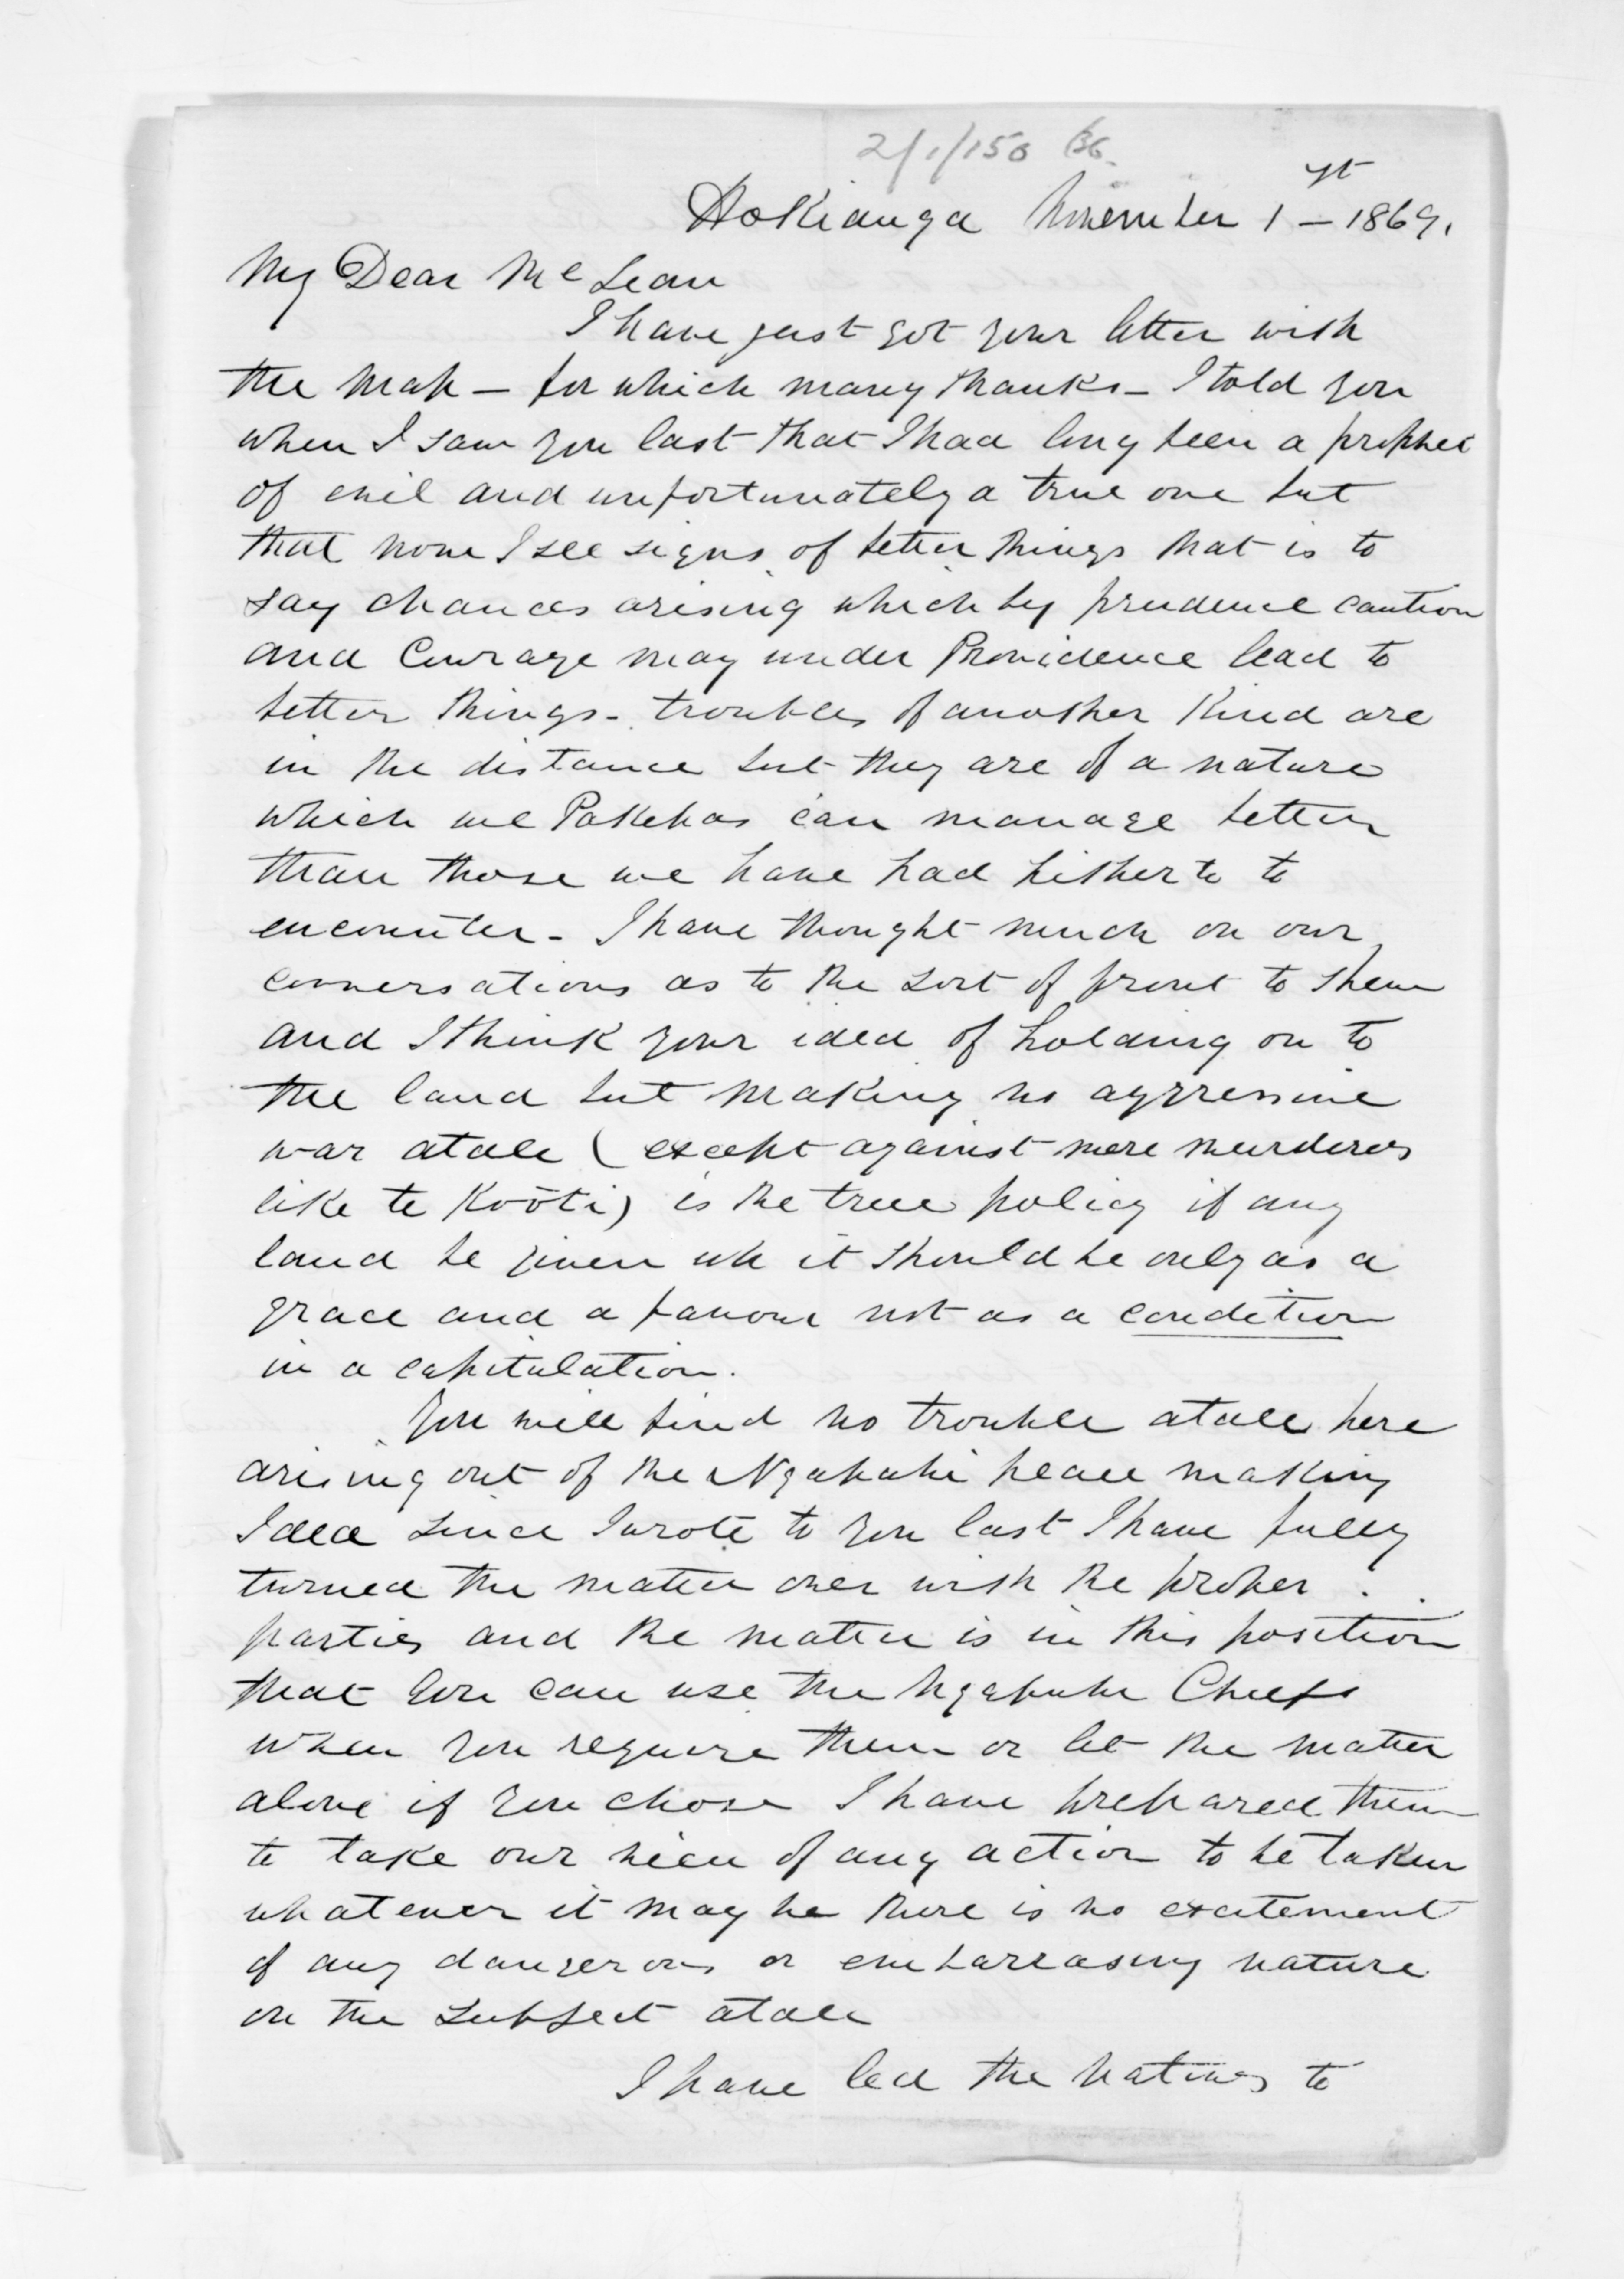 2/1/150
Hokianga November 1st – 1869.
My Dear McLean
I have just got your letter with
the Map – for which many thanks – I told you
when I saw you last that I had long been a prophet
of evil and unfortunately a true one but
that now I see signs of better things that is to
say chances arising which by prudence caution
and Courage may under Providence lead to
better things – troubles of another Kind are
in the distance but they are of a nature
which we Pakehas can manage better
than those we have had hitherto to
encounter – I have thought much on our
conversations as to the sort of front to shew
and I think your idea of holding on to
the land but making no aggressive
war atall (except against mere murderers
like te Kooti) is the true policy if any
land be given up it should be only as a
grace and a favour not as a condition
in a capitulation.
You will find no trouble atall here
arising out of the Ngapuhi peace making
Idea since I wrote to you last I have fully
turned the matter over with the proper
parties and the matter is in this position
that you can use the Ngapuhi Chiefs
when you require them or let the matter
alone if you chose I have prepared them
to take our view of any action to be taken
whatever it may be there is no excitement
of any dangerous or embarrasing nature
on the subject atall
I have led the natives to